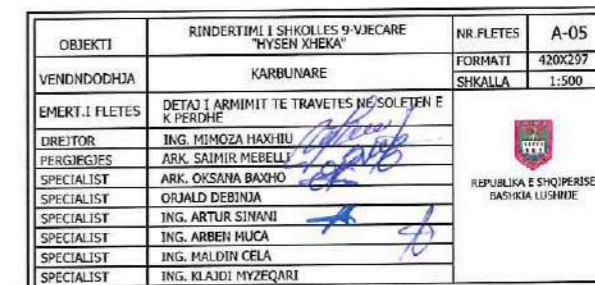 OBJEKTI RINDERTIMI I SHKOLLES 9-VJECARE NR.FLETES A-05
"HYSEN XHEKA"
VENDNDODHJA KARBUNARE FORMATI 420X297
SHKALLA 1:500
EMERT.I FLETES DETAJ I ARMIMIT TE TRAVETES NE SOLETEN E
K PERDHE
DREJTOR ING. MIMOZA HAXHIU
PERGJEGJES ARK. SAIMIR MEBELLI
SPECIALIST ARK. OKSANA BAXHO
SPECIALIST ORJALD DEBINJA
SPECIALIST ING. ARTUR SINANI
SPECIALIST ING. ARBEN MUCA
SPECIALIST ING. MALDIN CELA
SPECIALIST ING. KLAJDI MYZEQARI
REPUBLIKA E SHQIPERISE
BASHKIA LUSHNJE